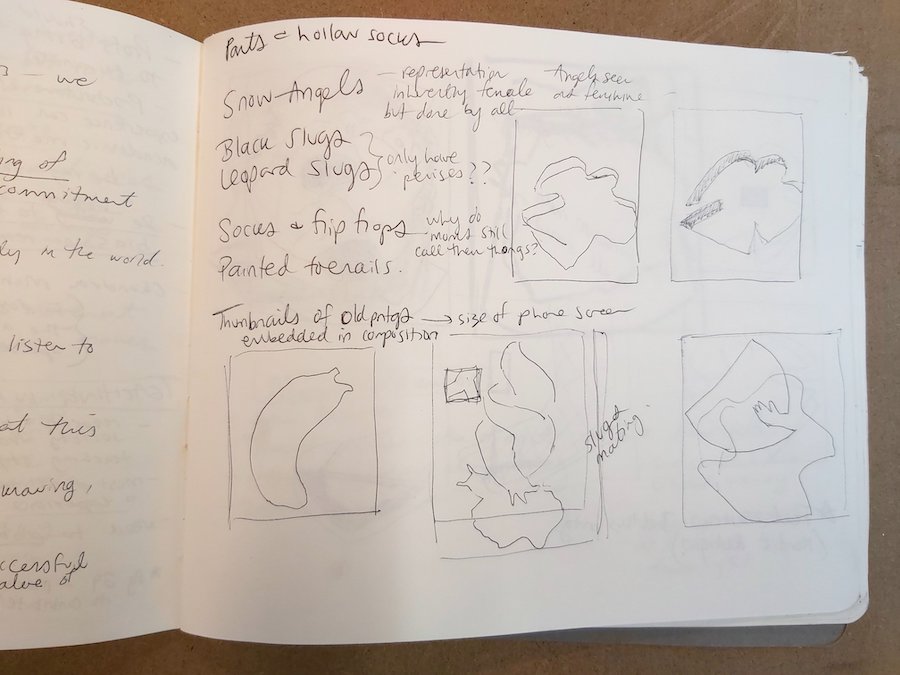 s – we
ng of
commitment
ly in the world.
listen to
at this
rawing,
ccessful
alve of
Pants = hollow socks
Snow-Angels – representation
inherently female
but done by all
Angels seen
as feminine
Black slugs
Leopard slugs
only have
penises??
Socks & flip flops – why do
moms still
call them thongs?
Painted toenails.
Thumbnails of old pntgs → size of phone screen
embedded in composition
slugs
mating.